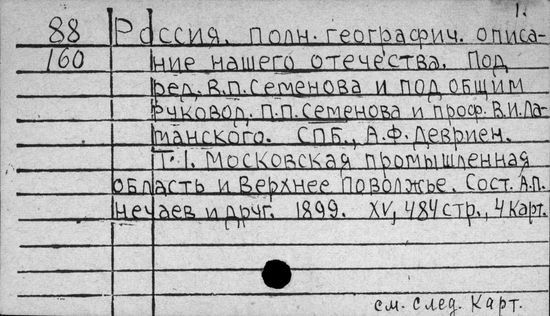 1.
88 Россия. Полн. географич. описа-
160 ние нашего отечества. Под
ред. В.П. Семенова и под общим
руковод. П.П. Семенова и проф. В.И. Ла-
манского. СПБ., А.Ф. Девриен.
Т. I. Московская промышленная
область и Верхнее Поволжье. Сост. А.П.
Нечаев и друг. 1899. XV, 484 стр., 4 карт.
см. след. карт.